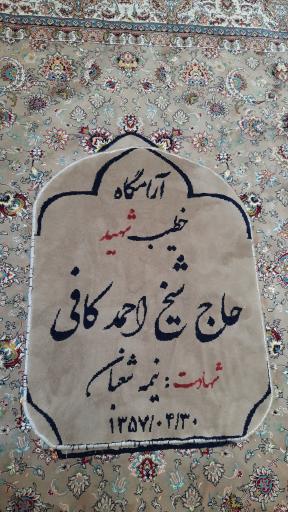 آرامگاه
خطیب شهید
حاج شیخ احمد کافی
شهادت: نیمه شعبان
۱۳۵۷/۰۴/۳۰